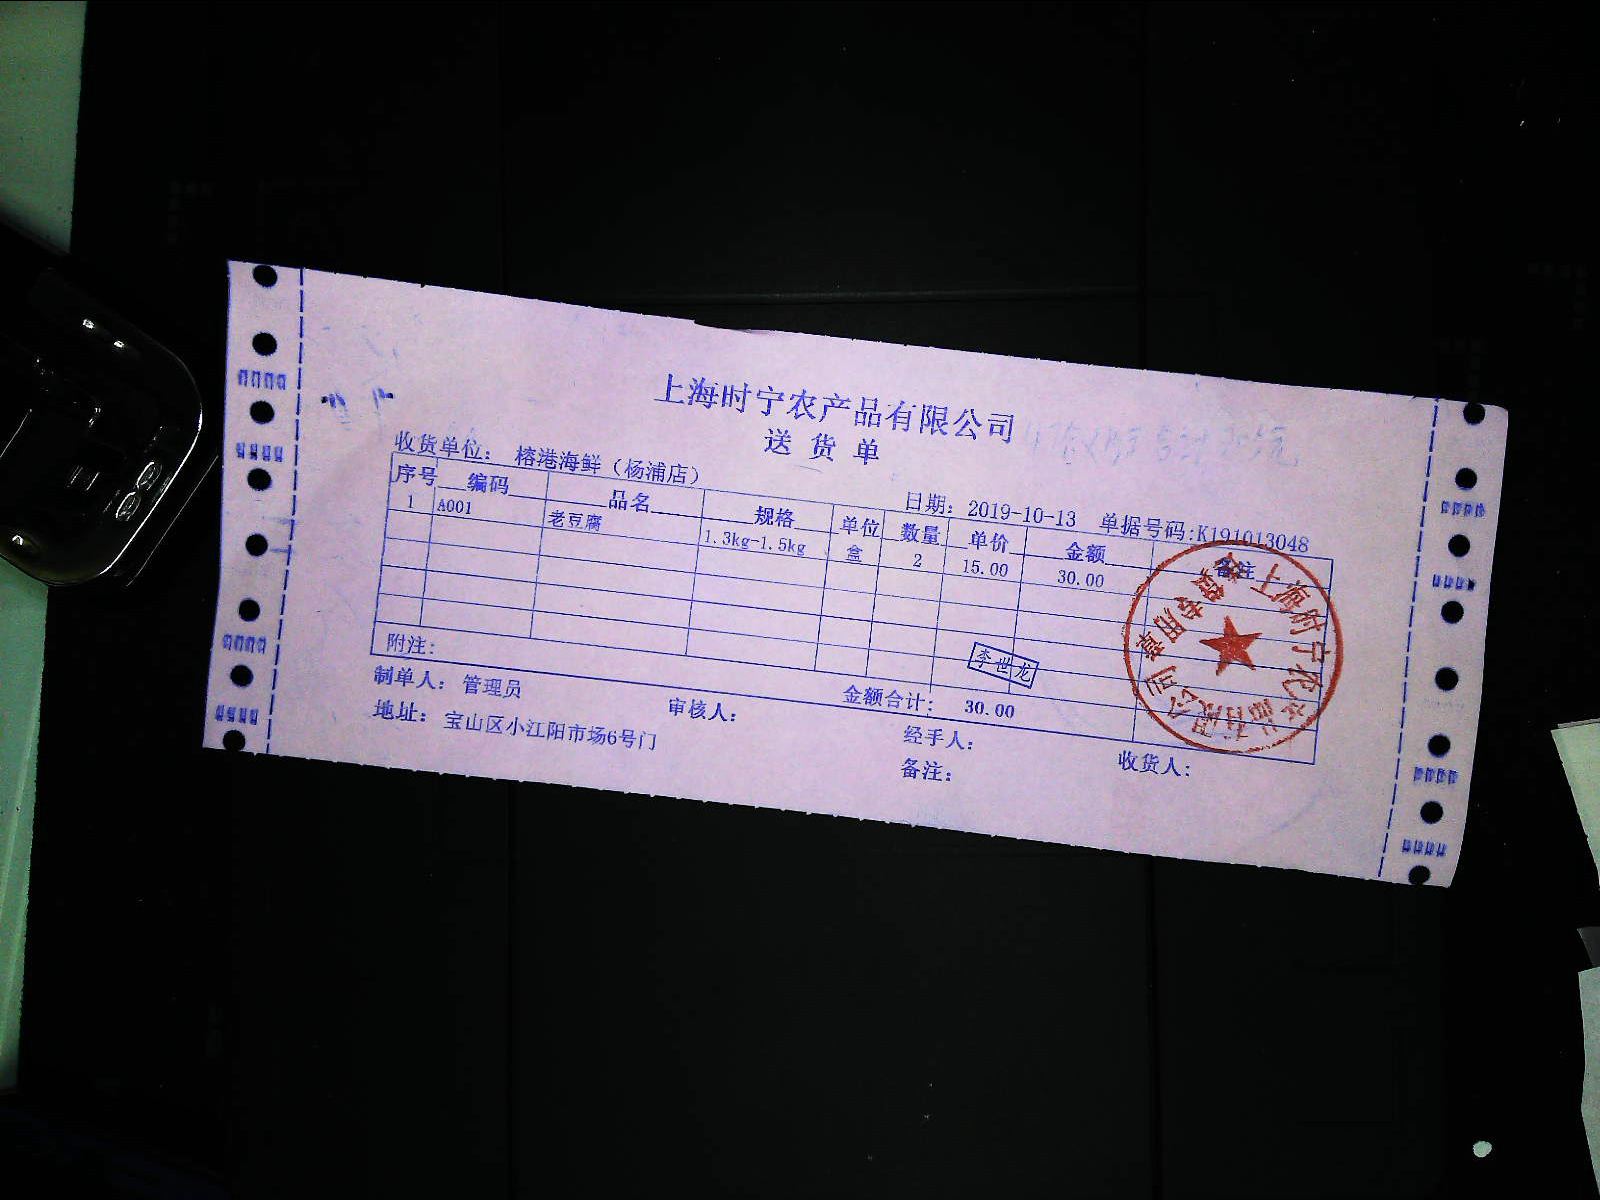 上海时宁农产品有限公司
送货单
收货单位: 榕港海鲜（杨浦店） 日期: 2019-10-13 单据号码:K191013048
序号 编码 品名 规格 单位 数量 单价 金额 备注
1 A001 老豆腐 1.3kg-1.5kg 盒 2 15.00 30.00
附注: 金额合计: 30.00
李世龙
制单人: 管理员 审核人: 经手人: 收货人:
地址: 宝山区小江阳市场6号门 备注:
上海时宁农产品有限公司
专用章